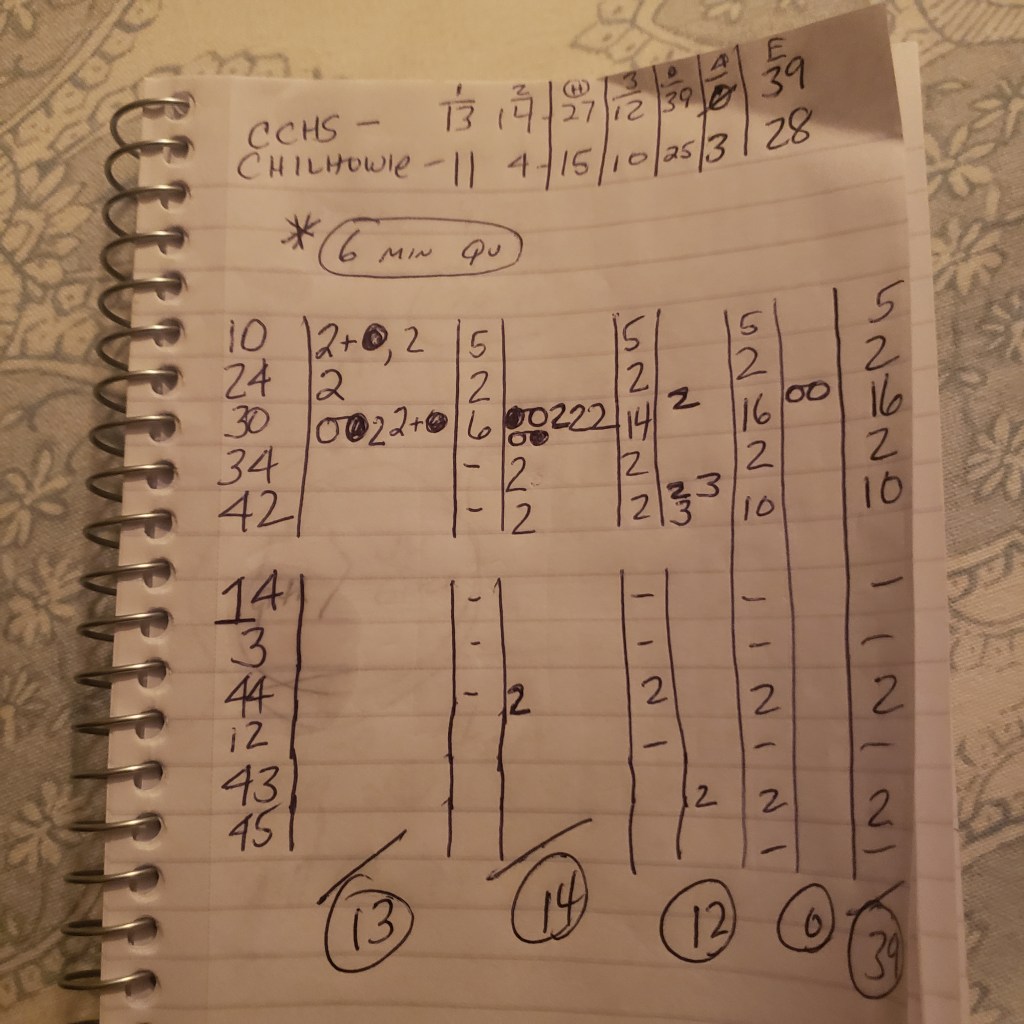 1 2 H 3 0 4 E
CCHS - 13 14 27 12 39 0 39
CHILHOWIE - 11 4 - 15 10 25 3 28
* 6 MIN QU
10 2+0, 2 5 5 5 5
24 2 2 2 2 2
30 00 2 2+0 6 00222 00 14 2 16 00 16
34 - 2 2 2 2
42 - 2 2 2 3 3 10 10
14 - - - -
3 - - - -
44 - 2 2 2 2
12 - - -
43 2 2 2
45 - -
13 14 12 0 39